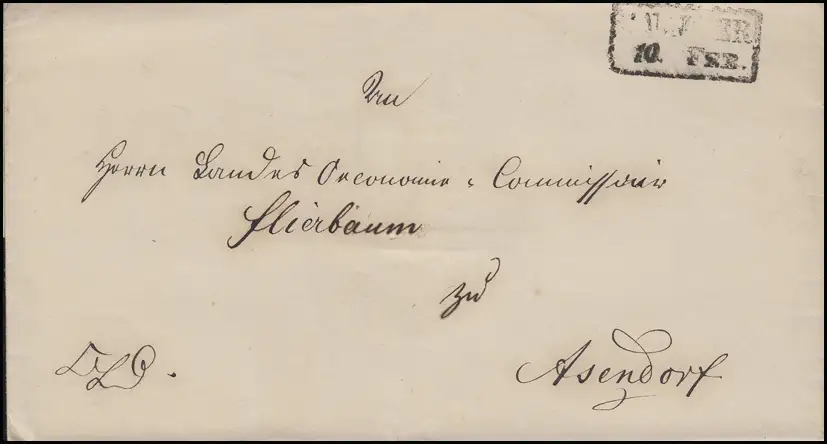 10. FEB.
An
Herrn Landes Oeconomie-Commissair
Flierbaum
zu
Asendorf